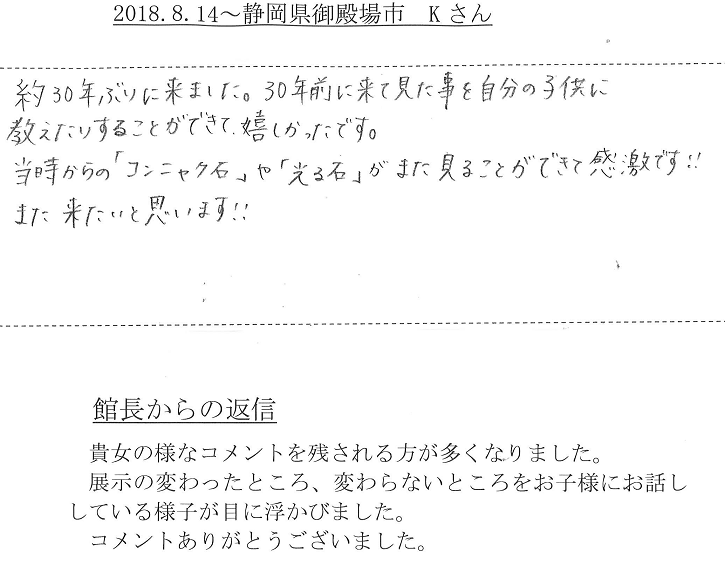 2018.8.14～静岡県御殿場市　Kさん
約30年ぶりに来ました。30年前に来て見た事を自分の子供に
教えたりすることができて、嬉しかったです。
当時からの「コンニャク石」や「光る石」がまた見ることができて感激です!!
また来たいと思います!!
館長からの返信
貴女の様なコメントを残される方が多くなりました。
展示の変わったところ、変わらないところをお子様にお話し
している様子が目に浮かびました。
コメントありがとうございました。